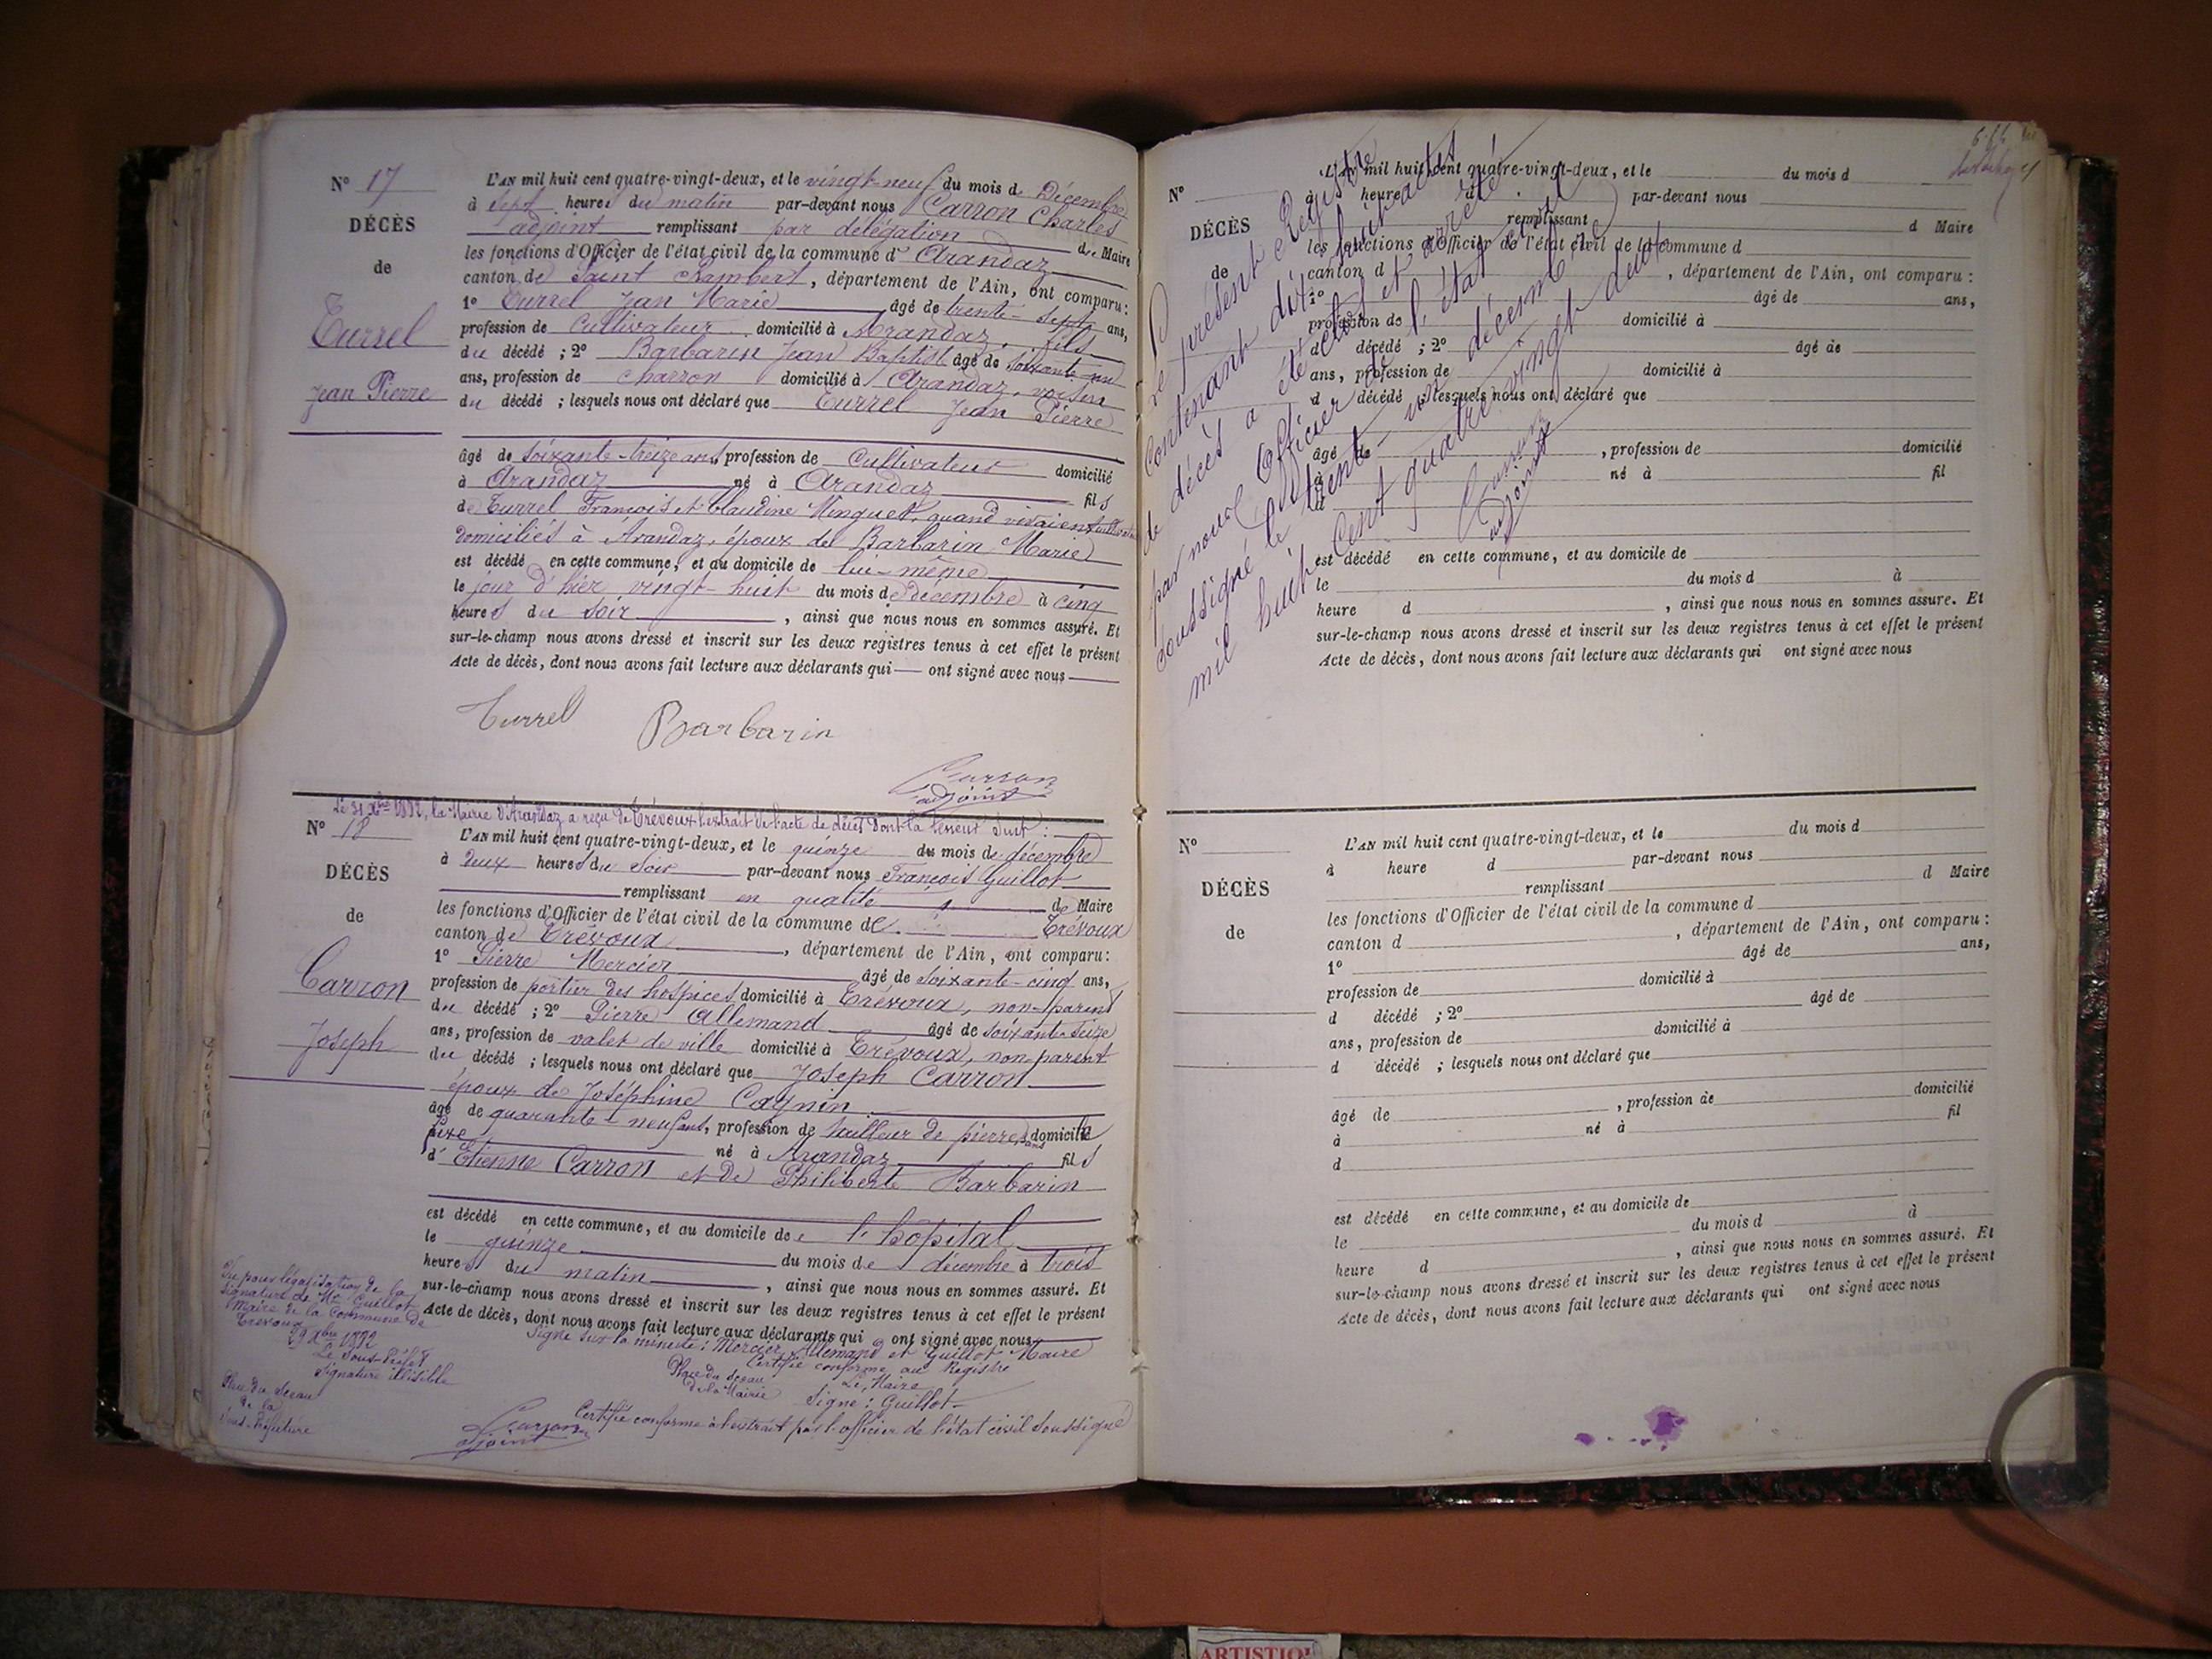 N° 17
DÉCÈS
de
Turrel
Jean Pierre
L'AN mil huit cent quatre-vingt-deux, et le vingt-neuf du mois de Décembre
à sept heures du matin par-devant nous Carron Charles
adjoint remplissant par délégation de Maire
les fonctions d'Officier de l'état civil de la commune d'Arandaz
canton de Saint Rambert, département de l'Ain, ont comparu:
1° Turrel Jean Marie âgé de trente-sept ans,
profession de Cultivateur domicilié à Arandaz, fils
du décédé ; 2° Barbarin Jean Baptist âgé de soixante un
ans, profession de charron domicilié à Arandaz, voisin
du décédé ; lesquels nous ont déclaré que Turrel Jean Pierre
âgé de soixante-treize ans, profession de Cultivateur domicilié
à Arandaz né à Arandaz fils
de Turrel François et Claudine Minguet, quand vivaient
domiciliés à Arandaz, époux de Barbarin Marie
est décédé en cette commune, et au domicile de lui-même
le jour d'hier vingt-huit du mois de Décembre à cinq
heures du soir, ainsi que nous nous en sommes assuré. Et
sur-le-champ nous avons dressé et inscrit sur les deux registres tenus à cet effet le présent
Acte de décès, dont nous avons fait lecture aux déclarants qui ont signé avec nous
Turrel Barbarin
Carron
adjoint
Le 31 Xbre 1882, la Mairie d'Arandaz a reçu de Trévoux l'extrait de l'acte de décès dont la teneur suit :
N° 18
DÉCÈS
de
Carron
Joseph
L'AN mil huit cent quatre-vingt-deux, et le quinze du mois de décembre
à deux heures du soir par-devant nous François Guillot
remplissant en qualité de Maire
les fonctions d'Officier de l'état civil de la commune de Trévoux
canton de Trévoux, département de l'Ain, ont comparu:
1° Pierre Mercier âgé de soixante-cinq ans,
profession de portier des hospices domicilié à Trévoux, non-parent
du décédé ; 2° Pierre Allemand âgé de soixante seize
ans, profession de valet de ville domicilié à Trévoux, non-parent
du décédé ; lesquels nous ont déclaré que Joseph Carron
époux de Joséphine Cagnin
âgé de quarante-neuf ans, profession de tailleur de pierre, sans domicile
fixe né à Arandaz fils
d'Etienne Carron et de Philiberte Barbarin
est décédé en cette commune, et au domicile de l'hôpital
le quinze du mois de décembre à trois
heures du matin, ainsi que nous nous en sommes assuré. Et
sur-le-champ nous avons dressé et inscrit sur les deux registres tenus à cet effet le présent
Acte de décès, dont nous avons fait lecture aux déclarants qui ont signé avec nous
Signé sur la minute : Mercier, Allemand et Guillot Maire
Certifié conforme au Registre
Place du Sceau
de la Mairie
Le Maire
Signé : Guillot
Certifié conforme à l'extrait par l'officier de l'état civil soussigné
Carron
adjoint
Vu pour légalisation de la
signature de Mr Guillot
Maire de la Commune de
Trévoux
29 Xbre 1882
Le Sous-Préfet
Signature illisible
Place du Sceau
de la
Sous-Préfecture
N°
DÉCÈS
de
L'AN mil huit cent quatre-vingt-deux, et le du mois d
à heure d par-devant nous
remplissant d Maire
les fonctions d'Officier de l'état civil de la commune d
canton d , département de l'Ain, ont comparu :
1° âgé de ans,
profession de domicilié à
d décédé ; 2° âgé de
ans, profession de domicilié à
d décédé ; lesquels nous ont déclaré que
âgé de , profession de domicilié
à né à fil
d
est décédé en cette commune, et au domicile de
le du mois d à
heure d , ainsi que nous nous en sommes assure. Et
sur-le-champ nous avons dressé et inscrit sur les deux registres tenus à cet effet le présent
Acte de décès, dont nous avons fait lecture aux déclarants qui ont signé avec nous
Le présent Registre
Contenant dix huit actes
de décès a été clos et arrêté
par nous Officier de l'état civil
soussigné le trente-un décembre
mil huit cent quatre vingt deux
Carron
adjoint
N°
DÉCÈS
de
L'AN mil huit cent quatre-vingt-deux, et le du mois d
à heure d par-devant nous
remplissant d Maire
les fonctions d'Officier de l'état civil de la commune d
canton d , département de l'Ain, ont comparu :
1° âgé de ans,
profession de domicilié à
d décédé ; 2° âgé de
ans, profession de domicilié à
d décédé ; lesquels nous ont déclaré que
âgé de , profession de domicilié
à né à fil
d
est décédé en cette commune, et au domicile de
le du mois d à
heure d , ainsi que nous nous en sommes assuré. Et
sur-le-champ nous avons dressé et inscrit sur les deux registres tenus à cet effet le présent
Acte de décès, dont nous avons fait lecture aux déclarants qui ont signé avec nous